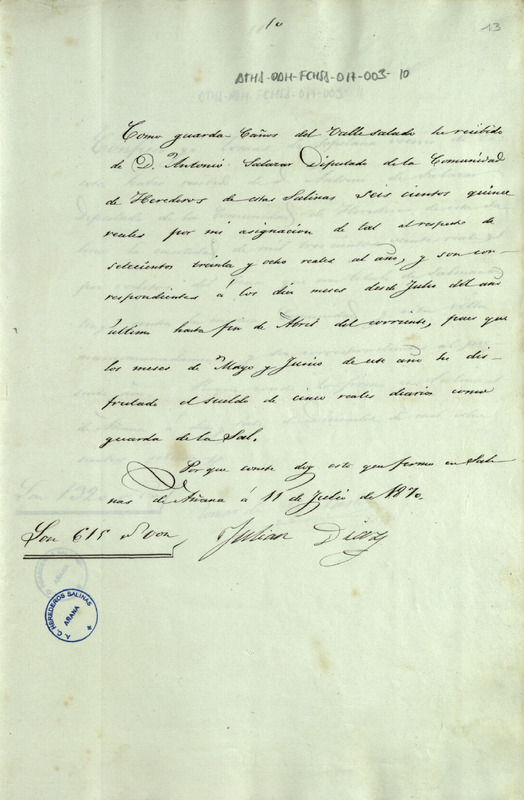 10
13
ATHA-DAH-FCHSA-017-003-10
Como guarda-Caños del Valle salado he recibido
de D. Antonio Salazar Diputado de la Comunidad
de Herederos de estas Salinas seis cientos quince
reales por mi asignacion de tal al respecto de
setecientos treinta y ocho reales al año, y son cor-
respondientes á los diez meses desde Julio del año
último hasta fin de Abril del corriente, pues que
los meses de Mayo y Junio de este año he dis-
frutado el sueldo de cinco reales diarios como
guarda de la Sal.
Por que conste doy este que firmo en Sali-
nas de Añana á 11 de Julio de 1870
Son 615 rs von
Julian Diaz
A. C. HEREDEROS SALINAS
AÑANA